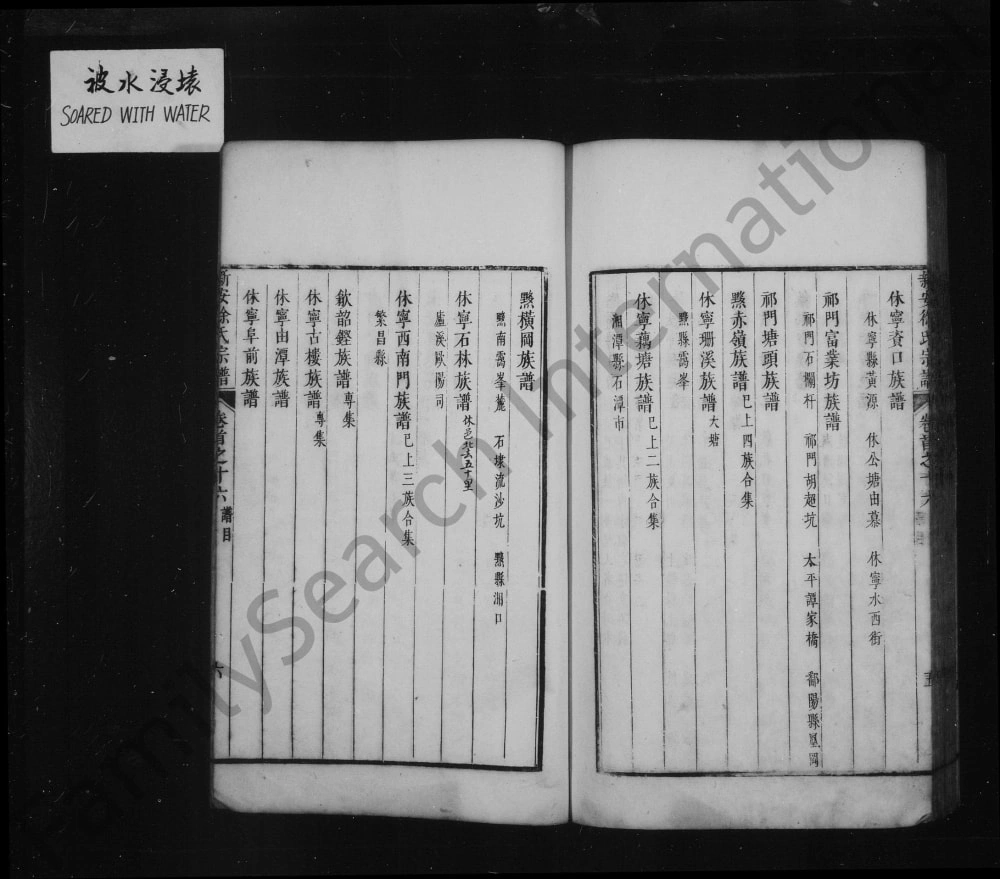 被水浸壊
SOARED WITH WATER
休寧資口族譜
休寧縣黃源 休公塘由慕 休寧水西街
祁門富業坊族譜
祁門石橺杆 祁門胡超坑 太平譚家橋 鄱陽縣
祁門塘頭族譜
黟赤嶺族譜 巳上四族合集
休寧珊溪族譜 大塘
黟縣靄峯
休寧藕塘族譜 巳上二族合集
湘潭縣石潭市
五
黟橫岡族譜
黟南靄峯麓 石埭流沙坑 黟縣湘口
休寧石林族譜 休邑北去五十里
廬溪歐陽司
休寧西南門族譜 巳上三族合集
繁昌縣
歙韶鏗族譜 專集
休寧古樓族譜 專集
休寧由潭族譜
休寧阜前族譜
新安徐氏宗譜 卷首之十六 譜目 六
FamilySearch International